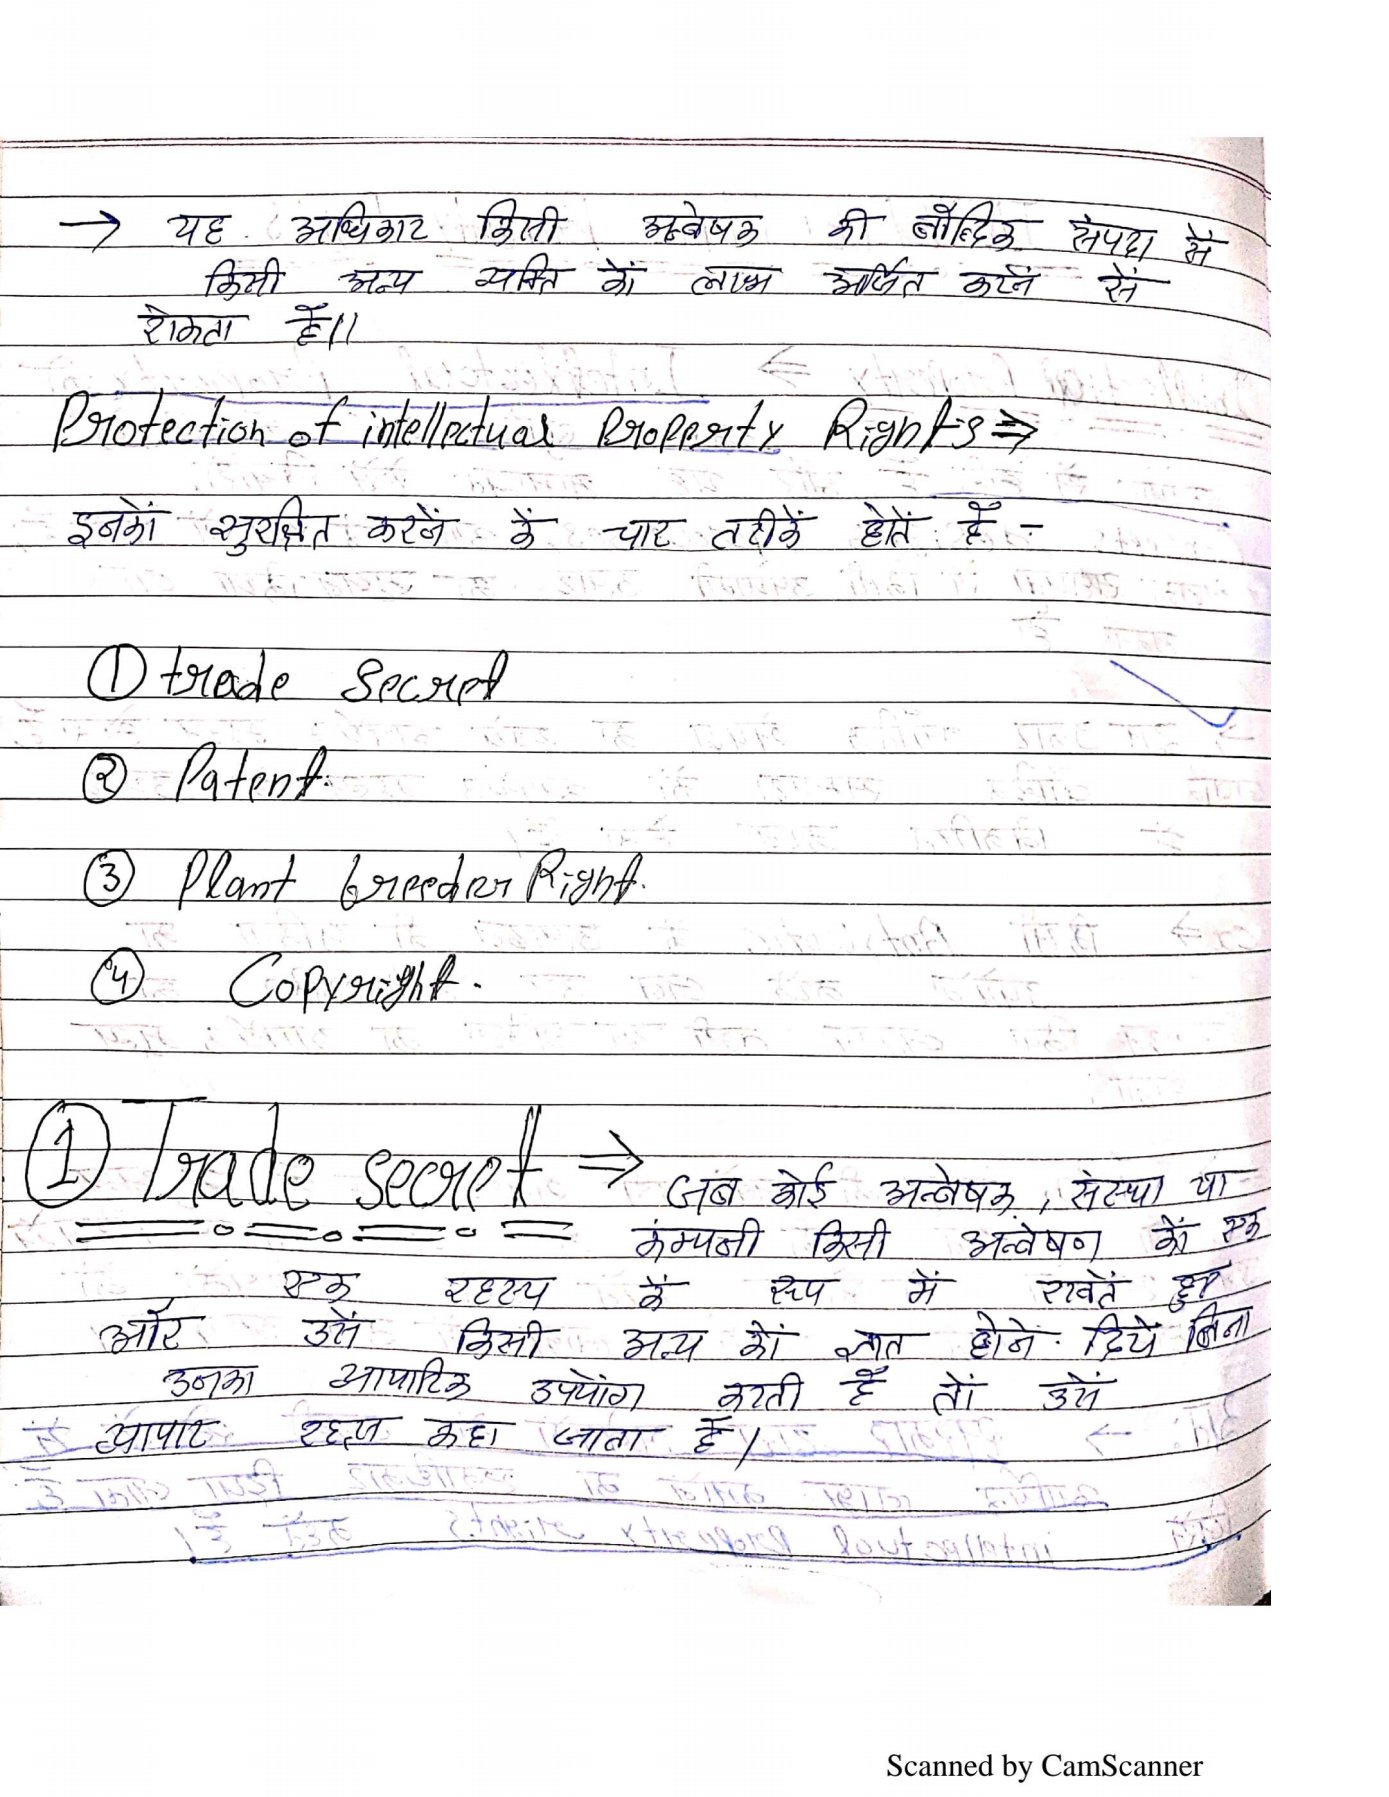 → यह अधिकार किसी अन्वेषक की बौद्धिक संपदा से
किसी अन्य व्यक्ति कों लाभ अर्जित करनें सें
रोकता हैं।।
Protection of intellectual Property Rights ⇒
इनकों सुरक्षित करनें कें चार तरीकें होतें हैं -
① trade secret
② Patent.
③ Plant breeder Right.
④ Copyright.
① Trade secret ⇒ जब कोई अन्वेषक, संस्था या
कंम्पनी किसी अन्वेषण कों एक
एक रहस्य कें रूप में रखतें हुए
और उसें किसी अन्य कों ज्ञात होनें दियें बिना
उनका व्यापारिक उपयोंग करती हैं तों उसें
व्यापार रहस्य कहा जाता हैं।
Scanned by CamScanner